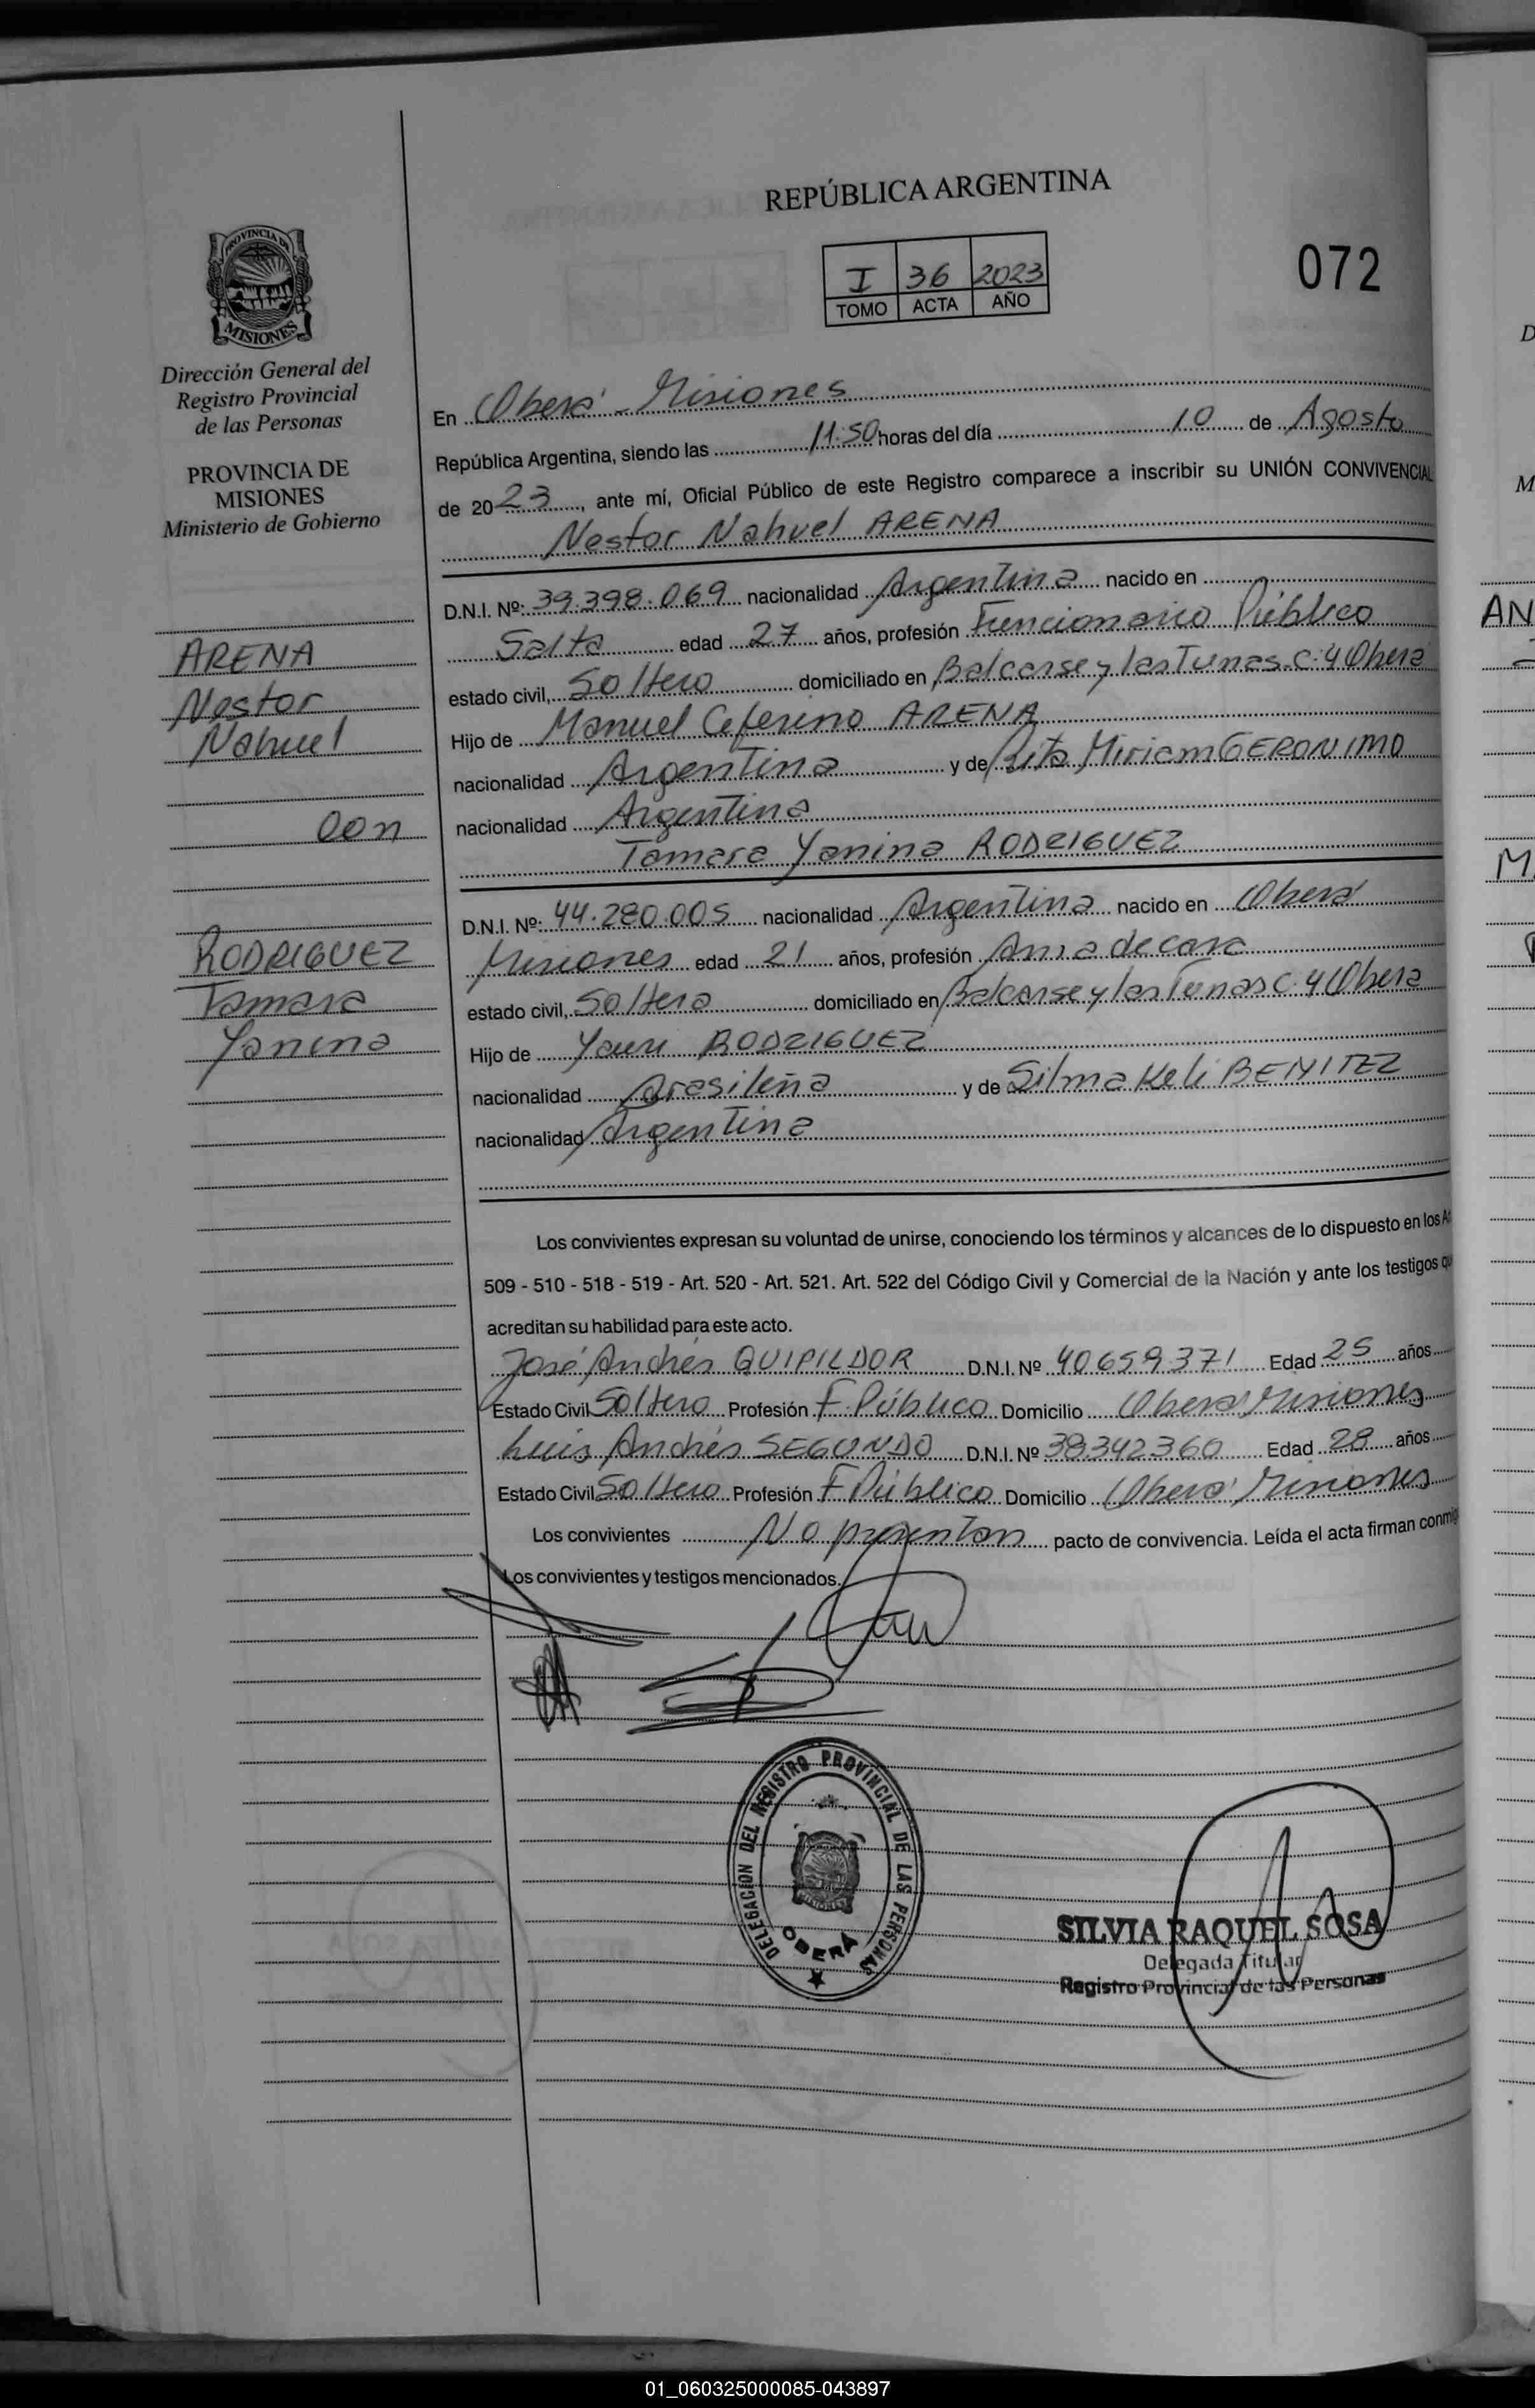 REPÚBLICA ARGENTINA
PROVINCIA DE
MISIONES
I 36 2023
TOMO ACTA AÑO
072
Dirección General del
Registro Provincial
de las Personas
PROVINCIA DE
MISIONES
Ministerio de Gobierno
ARENA
Nestor
Nahuel
con
RODRIGUEZ
Tamara
Yanina
En Oberá - Misiones
República Argentina, siendo las 11:50 horas del día 10 de Agosto
de 2023, ante mí, Oficial Público de este Registro comparece a inscribir su UNIÓN CONVIVENCIAL
Nestor Nahuel ARENA
D.N.I. Nº: 39.398.069 nacionalidad Argentina nacido en
Salta edad 27 años, profesión Funcionario Público
estado civil, Soltero domiciliado en Balcarse y las Tunas C: 4 Oberá
Hijo de Manuel Ceferino ARENA
nacionalidad Argentina y de Rita Miriam GERONIMO
nacionalidad Argentina
Tamara Yanina RODRIGUEZ
D.N.I. Nº: 44.280.005 nacionalidad Argentina nacido en Oberá
Misiones edad 21 años, profesión Ama de casa
estado civil, Soltera domiciliado en Balcarse y las Tunas C: 4 Oberá
Hijo de RODRIGUEZ
nacionalidad Brasileña y de Silma Keli BENITEZ
nacionalidad Argentina
Los convivientes expresan su voluntad de unirse, conociendo los términos y alcances de lo dispuesto en los
509 - 510 - 518 - 519 - Art. 520 - Art. 521. Art. 522 del Código Civil y Comercial de la Nación y ante los testigos
acreditan su habilidad para este acto.
José Andrés QUIPILDOR D.N.I. Nº 40659371 Edad 25 años
Estado Civil Soltero Profesión F. Público Domicilio Oberá Misiones
Luis Andrés SEGUNDO D.N.I. Nº 38342360 Edad 28 años
Estado Civil Soltero Profesión F Público Domicilio Oberá Misiones
Los convivientes No presentan pacto de convivencia. Leída el acta firman
Los convivientes y testigos mencionados.
DELEGACION DEL REGISTRO PROVINCIAL DE LAS PERSONAS
OBERÁ
SILVIA RAQUEL SOSA
Delegada Titular
Registro Provincial de las Personas
01_060325000085-043897